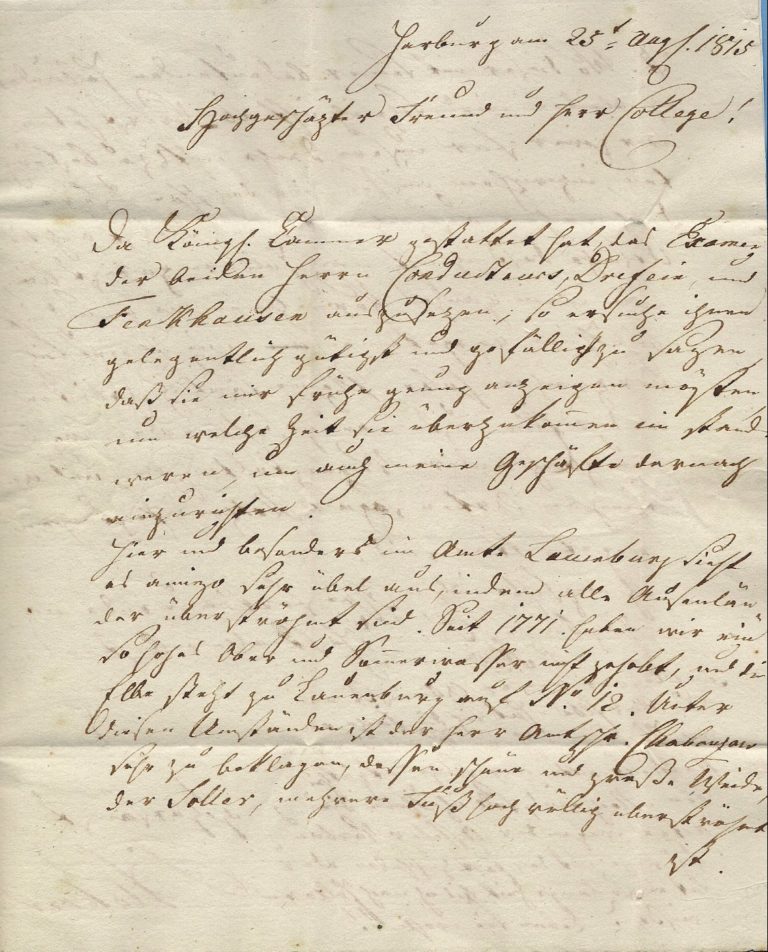 Harburg am 25t. Augs. 1815
Hochgeschäzter Freund und Herr College!
Da Königl. Cammer gestattet hat, das Examen
der beiden Herrn Conducteurs, und
Fenkhausen auszusezen, so ersuche ihnen
gelegentlich gütigst und gefälligst zu sagen,
daß sie mir frühe genug anzeigen mögten,
um welche Zeit sie überzukommen im stande
weren, um auch meine Geschäfte darnach
einzurichten.
Hier und besonders im Amte Lauenburg sieht
es aniezo sehr übel aus, indem alle Ausenlän
der überströhmt sind. Seit 1771. haben wir ein
so hohes Ober und Sommerwasser nicht gehabt, und die
Elbe steht zu Lauenburg auf No. 12. Unter
diesen Umständen ist der Herr Amtschr.
sehr zu beklagen, dessen schöne und große Weide,
der Soller, mehrere Fuß hoch völlig überströhmt
ist.